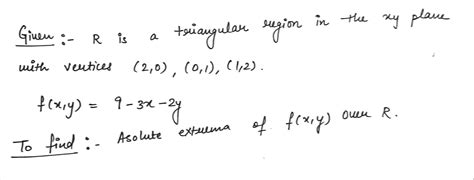 Given :- R is a triangular region in the xy plane
with vertices (2,0), (0,1), (1,2).
f(x,y) = 9-3x-2y
To find :- Asolute extrema of f(x,y) over R.